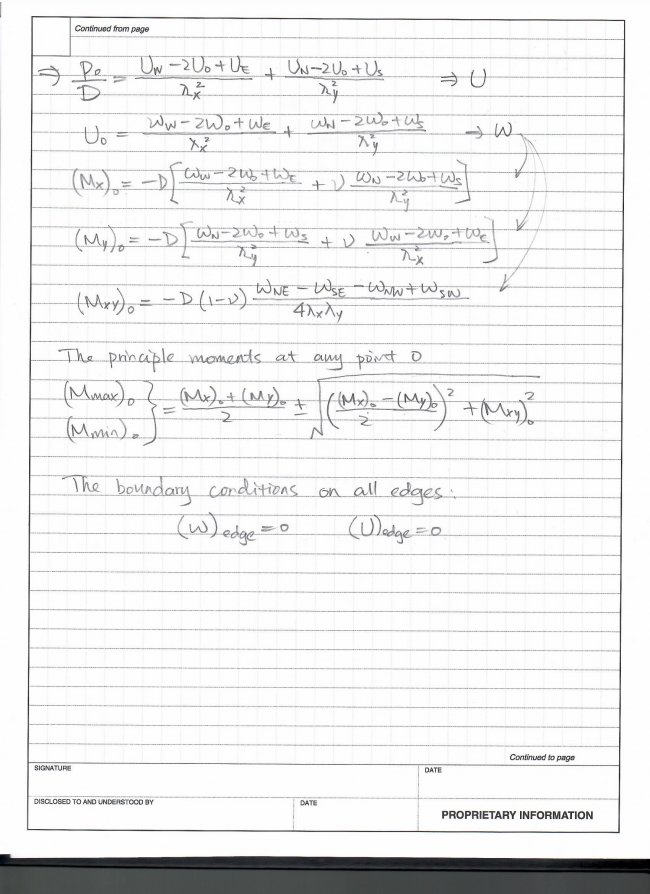 Continued from page
⇒ P₀/D = (U_W − 2U₀ + U_E)/λx² + (U_N − 2U₀ + U_S)/λy² ⇒ U
U₀ = (W_W − 2W₀ + W_E)/λx² + (W_N − 2W₀ + W_S)/λy² → W
(Mx)₀ = −D[(W_W − 2W₀ + W_E)/λx² + ν (W_N − 2W₀ + W_S)/λy²]
(My)₀ = −D[(W_N − 2W₀ + W_S)/λy² + ν (W_W − 2W₀ + W_E)/λx²]
(Mxy)₀ = −D(1−ν) (W_NE − W_SE − W_NW + W_SW)/4λxλy
The principle moments at any point O
(Mmax)₀ (Mmin)₀ } = ((Mx)₀ + (My)₀)/2 ± √(((Mx)₀ − (My)₀)/2)² + (Mxy)₀²
The boundary conditions on all edges:
(W)edge = 0 (U)edge = 0
Continued to page
SIGNATURE DATE
DISCLOSED TO AND UNDERSTOOD BY DATE
PROPRIETARY INFORMATION